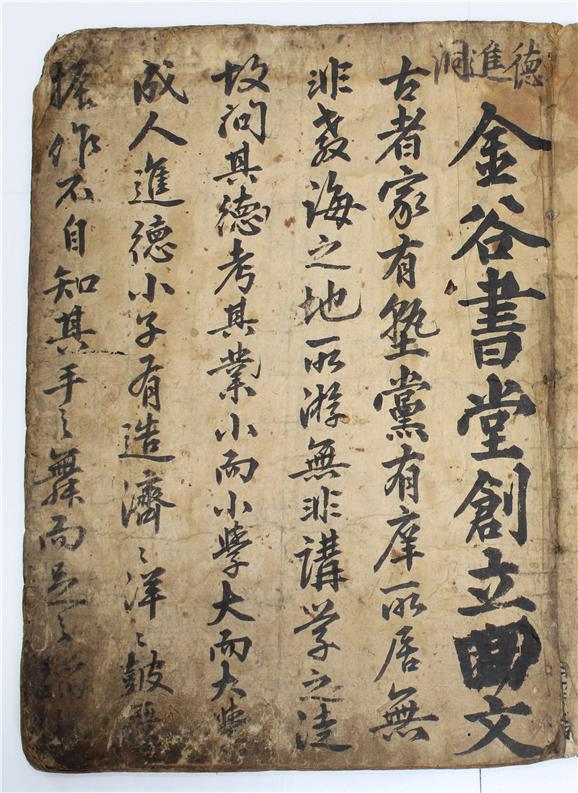 德進洞
金谷書堂創立文
古者家有塾黨有庠所居無
非教誨之地所游無非講学之徒
故问其德考其業小而小學大而大學
成人進德小子有造濟〻洋〻皷
振作不自知其手之舞而足之蹈